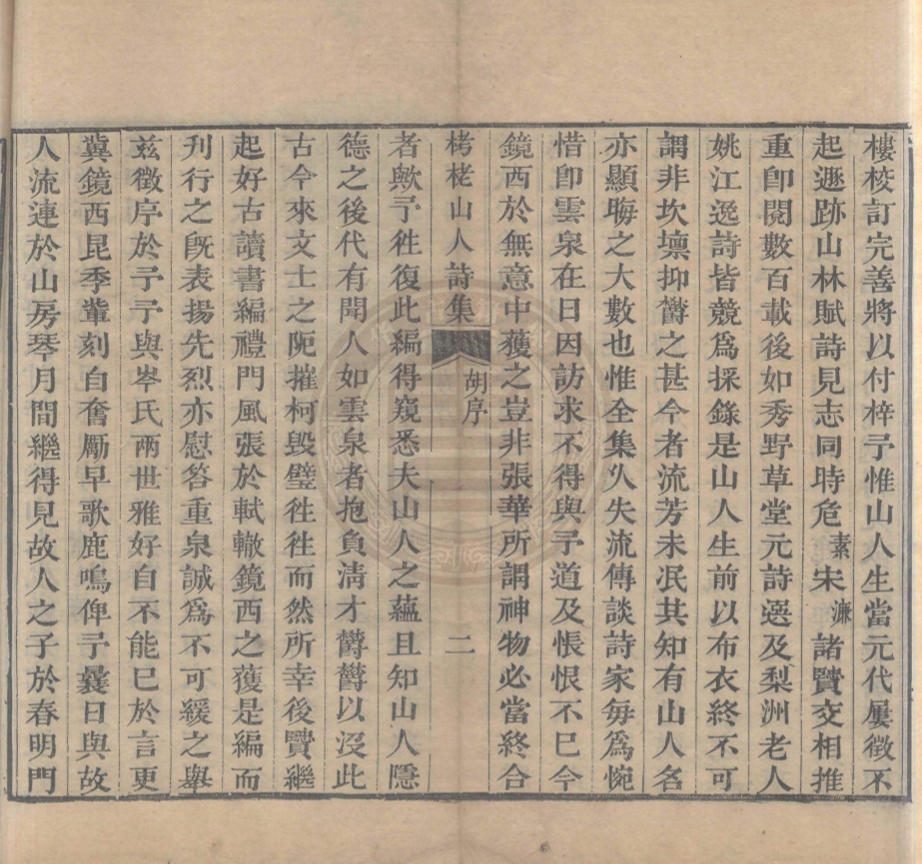 樓校訂完善將以付梓予惟山人生當元代屢徵不
起遯跡山林賦詩見志同時危素宋濂諸賢交相推
重卽閱數百載後如秀野草堂元詩選及梨洲老人
姚江逸詩皆競爲採錄是山人生前以布衣終不可
謂非坎壈抑欝之甚今者流芳未泯共知有山人名
亦顯晦之大數也惟全集久失流傳談詩家每爲惋
惜卽雲泉在日因訪求不得與予道及悵恨不已今
鏡西於無意中獲之豈非張華所謂神物必當終合
栲栳山人詩集 胡序 二
者歟予往復此編得窺悉夫山人之蘊且知山人隱
德之後代有聞人如雲泉者抱負淸才欝欝以沒此
古今來文士之阨摧柯毀璧往往而然所幸後賢繼
起好古讀書編禮門風張於軾轍鏡西之獲是編而
刊行之旣表揚先烈亦慰答重泉誠爲不可緩之舉
兹徵序於予予與岑氏兩世雅好自不能已於言更
冀鏡西昆季輩刻自奮勵早歌鹿鳴俾予曩日與故
人流連於山房琴月間繼得見故人之子於春明門